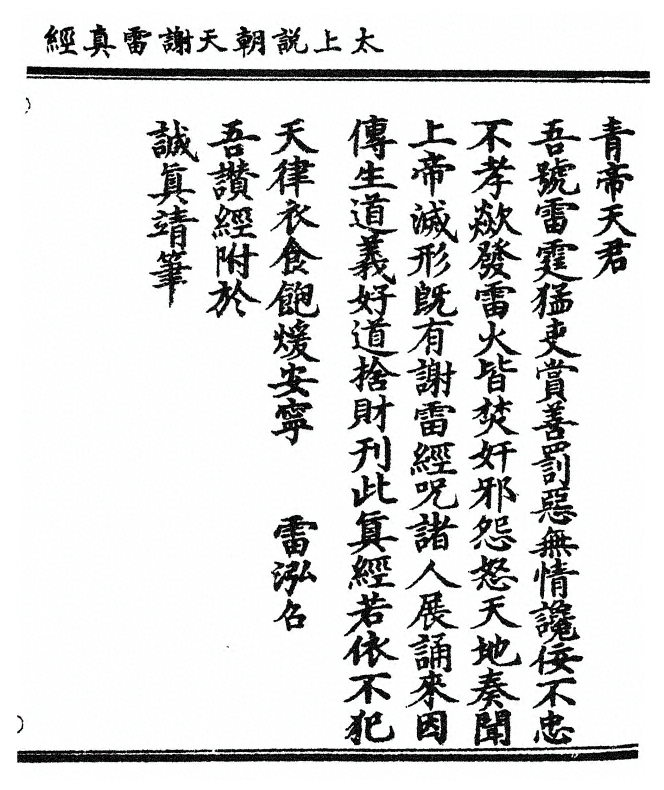 太上説朝天謝雷真經
青帝天君
吾號雷霆猛吏賞善罰惡無情讒佞不忠
不孝歘發雷火皆焚奸邪怨怒天地奏聞
上帝滅形既有謝雷經呪諸人展誦來因
傳生道義好道捨財刊此真經若依不犯
天律衣食飽煖安寧　雷泓名
吾讃經附於
誠真靖筆